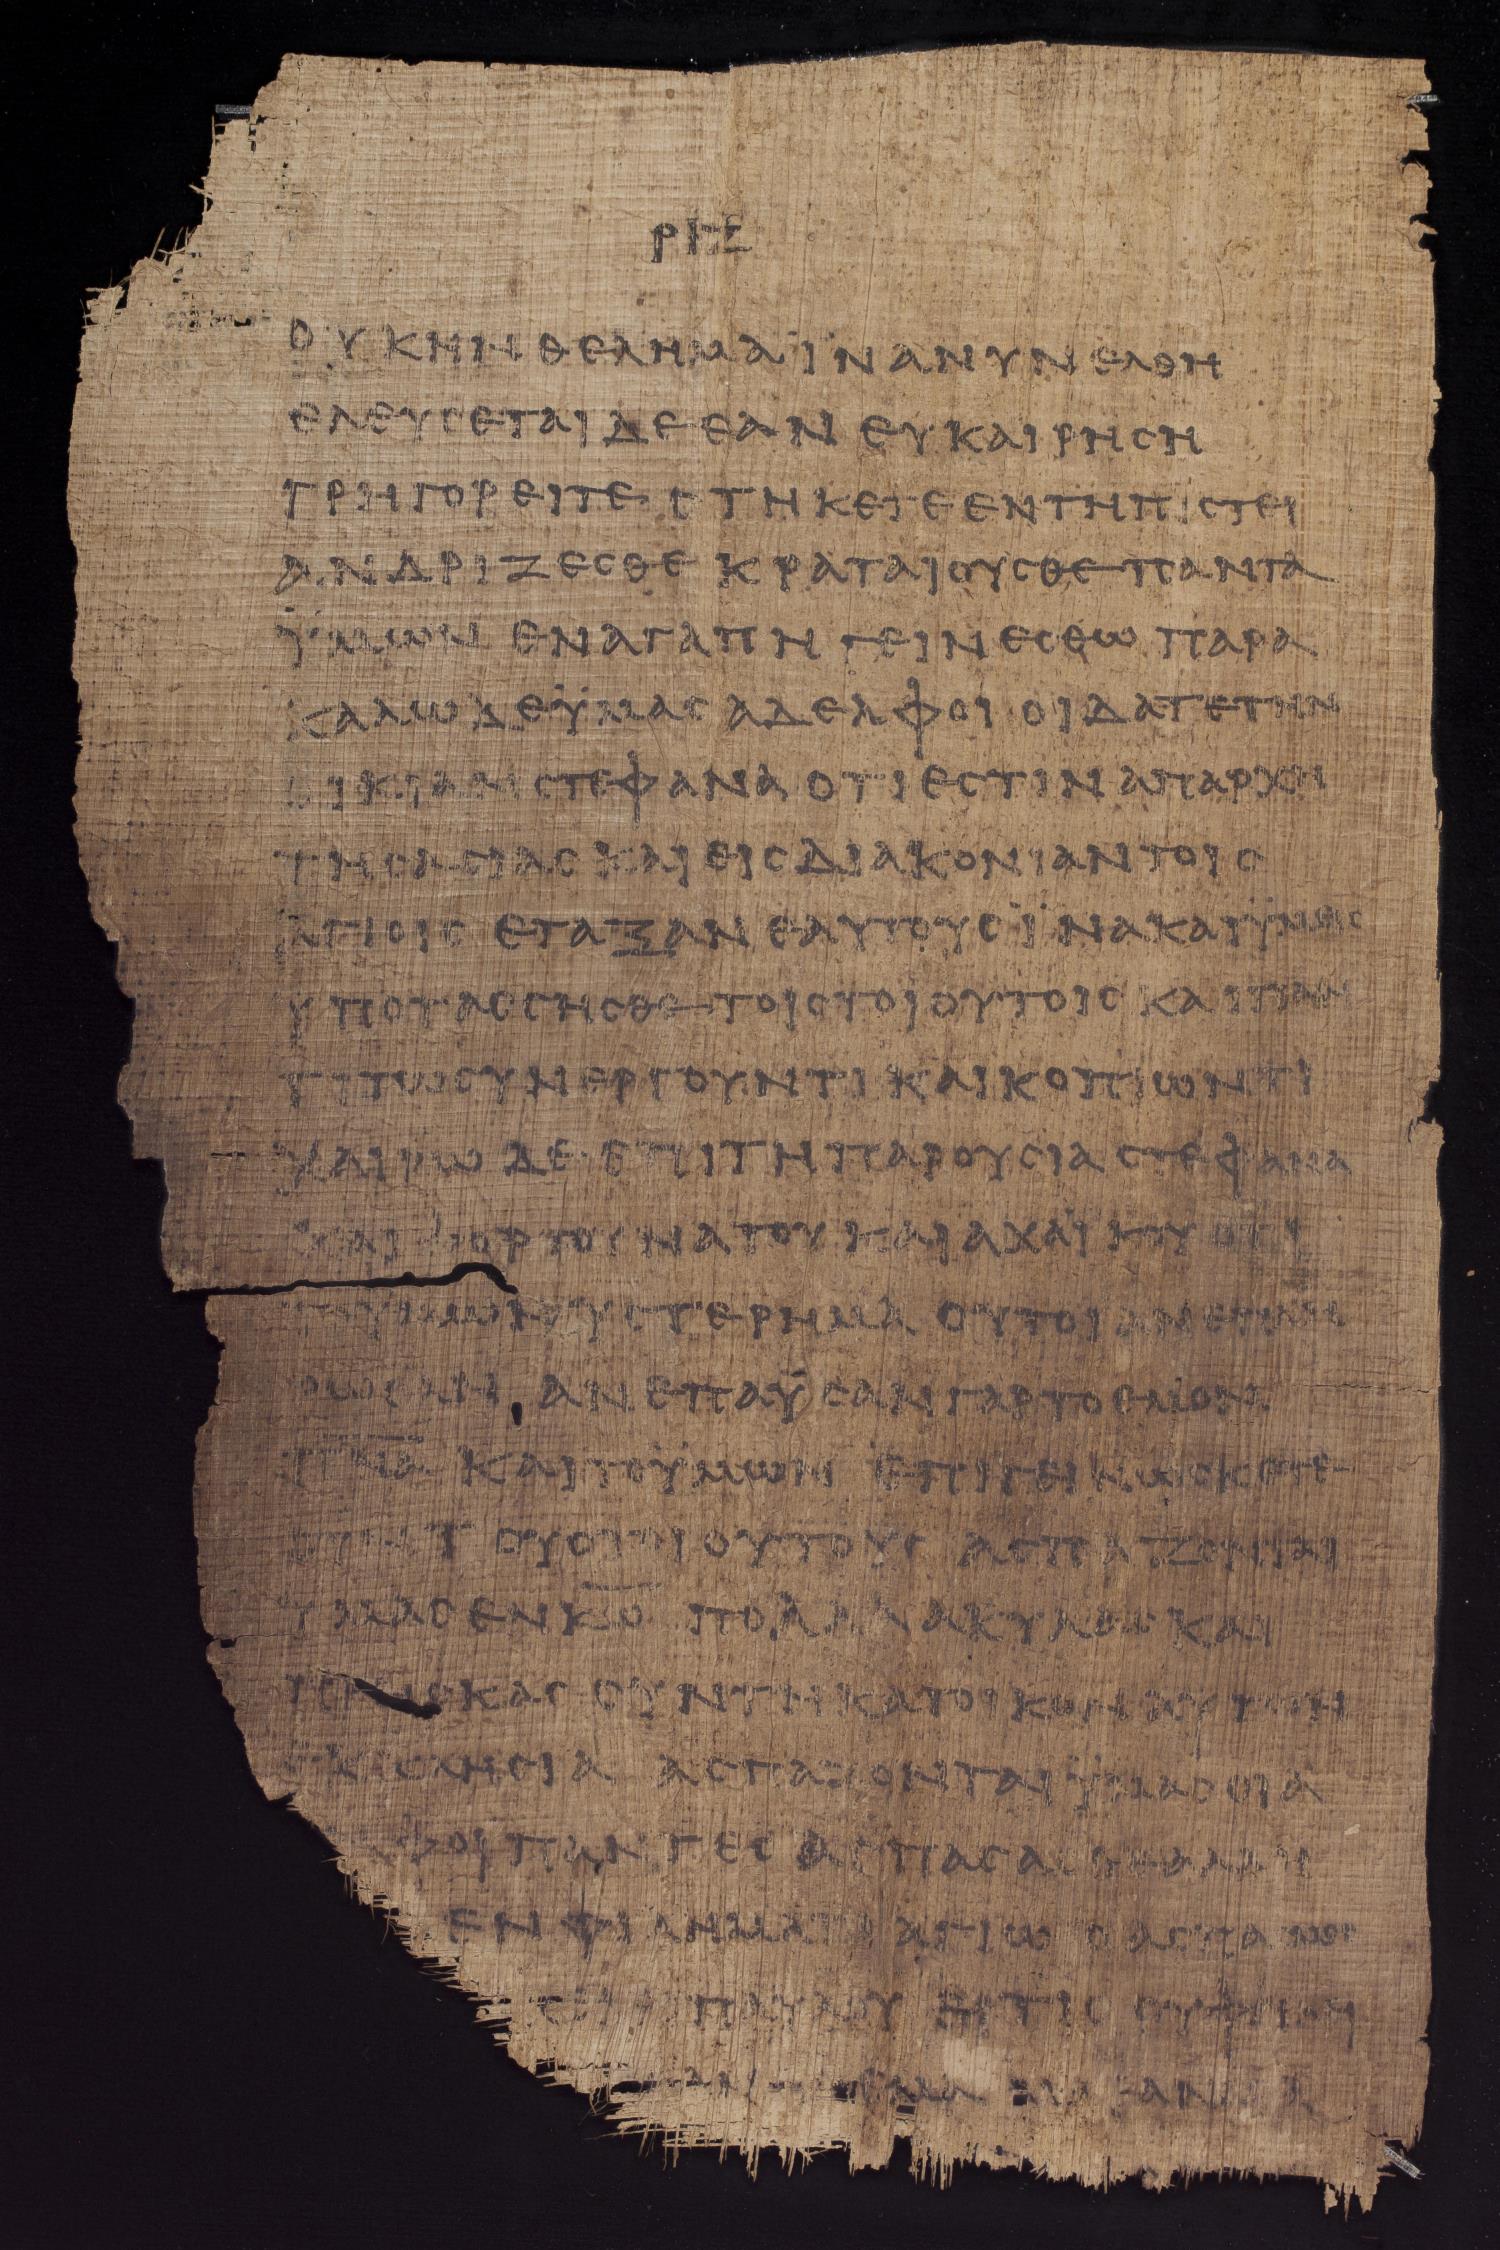 ΡΙΖ
ΟΥΚ ΗΝ ΘΕΛΗΜΑ ΪΝΑ ΝΥΝ ΕΛΘΗ
ΕΛΕΥϹΕΤΑΙ ΔΕ ΕΑΝ ΕΥΚΑΙΡΗϹΗ
ΓΡΗΓΟΡΕΙΤΕ ϹΤΗΚΕΤΕ ΕΝ ΤΗ ΠΙϹΤΕΙ
ΑΝΔΡΙΖΕϹΘΕ ΚΡΑΤΑΙΟΥϹΘΕ ΠΑΝΤΑ
ΫΜΩΝ ΕΝ ΑΓΑΠΗ ΓΕΙΝΕϹΘΩ ΠΑΡΑ
ΚΑΛΩ ΔΕ ΫΜΑϹ ΑΔΕΛΦΟΙ ΟΙΔΑΤΕ ΤΗΝ
ΟΙΚΙΑΝ ϹΤΕΦΑΝΑ ΟΤΙ ΕϹΤΙΝ ΑΠΑΡΧΗ
ΤΗϹ ΑϹΙΑϹ ΚΑΙ ΕΙϹ ΔΙΑΚΟΝΙΑΝ ΤΟΙϹ
ΑΓΙΟΙϹ ΕΤΑΞΑΝ ΕΑΥΤΟΥϹ ΪΝΑ ΚΑΙ ΫΜΕΙϹ
ΥΠΟΤΑϹϹΗϹΘΕ ΤΟΙϹ ΤΟΙΟΥΤΟΙϹ ΚΑΙ ΠΑΝ
ΤΙ ΤΩ ϹΥΝΕΡΓΟΥΝΤΙ ΚΑΙ ΚΟΠΙΩΝΤΙ
ΧΑΙΡΩ ΔΕ ΕΠΙ ΤΗ ΠΑΡΟΥϹΙΑ ϹΤΕΦΑΝΑ
ΚΑΙ ΦΟΡΤΟΥΝΑΤΟΥ ΚΑΙ ΑΧΑΪΚΟΥ ΟΤΙ
ΤΟ ΥΜΩΝ ΫϹΤΕΡΗΜΑ ΟΥΤΟΙ ΑΝΕΠΛΗ
ΡΩϹΑΝ ΑΝΕΠΑΫϹΑΝ ΓΑΡ ΤΟ ΕΜΟΝ
Π̅Ν̅Α̅ ΚΑΙ ΤΟ ΫΜΩΝ ΕΠΙΓΕΙΝΩϹΚΕΤΕ
ΟΥΝ ΤΟΥϹ ΤΟΙΟΥΤΟΥϹ ΑϹΠΑΖΟΝΤΑΙ
ΥΜΑϹ ΕΝ Κ̅Ω̅ ΠΟΛΛΑ ΑΚΥΛΑϹ ΚΑΙ
ϹΥΝ ΤΗ ΚΑΤ ΟΙΚΟΝ ΑΥΤΩΝ
ΕΚΚΛΗϹΙΑ ΑϹΠΑΖΟΝΤΑΙ ΫΜΑϹ ΟΙ Α
ΦΟΙ ΠΑΝΤΕϹ ΑϹΠΑϹΑ
ΕΝ ΦΙΛΗΜΑΤΙ ΑΓΙΩ Ο ΑϹΠΑϹΜΟϹ
ΠΑΥΛΟΥ ΕΙ ΤΙϹ ΟΥ ΦΙΛΕΙ